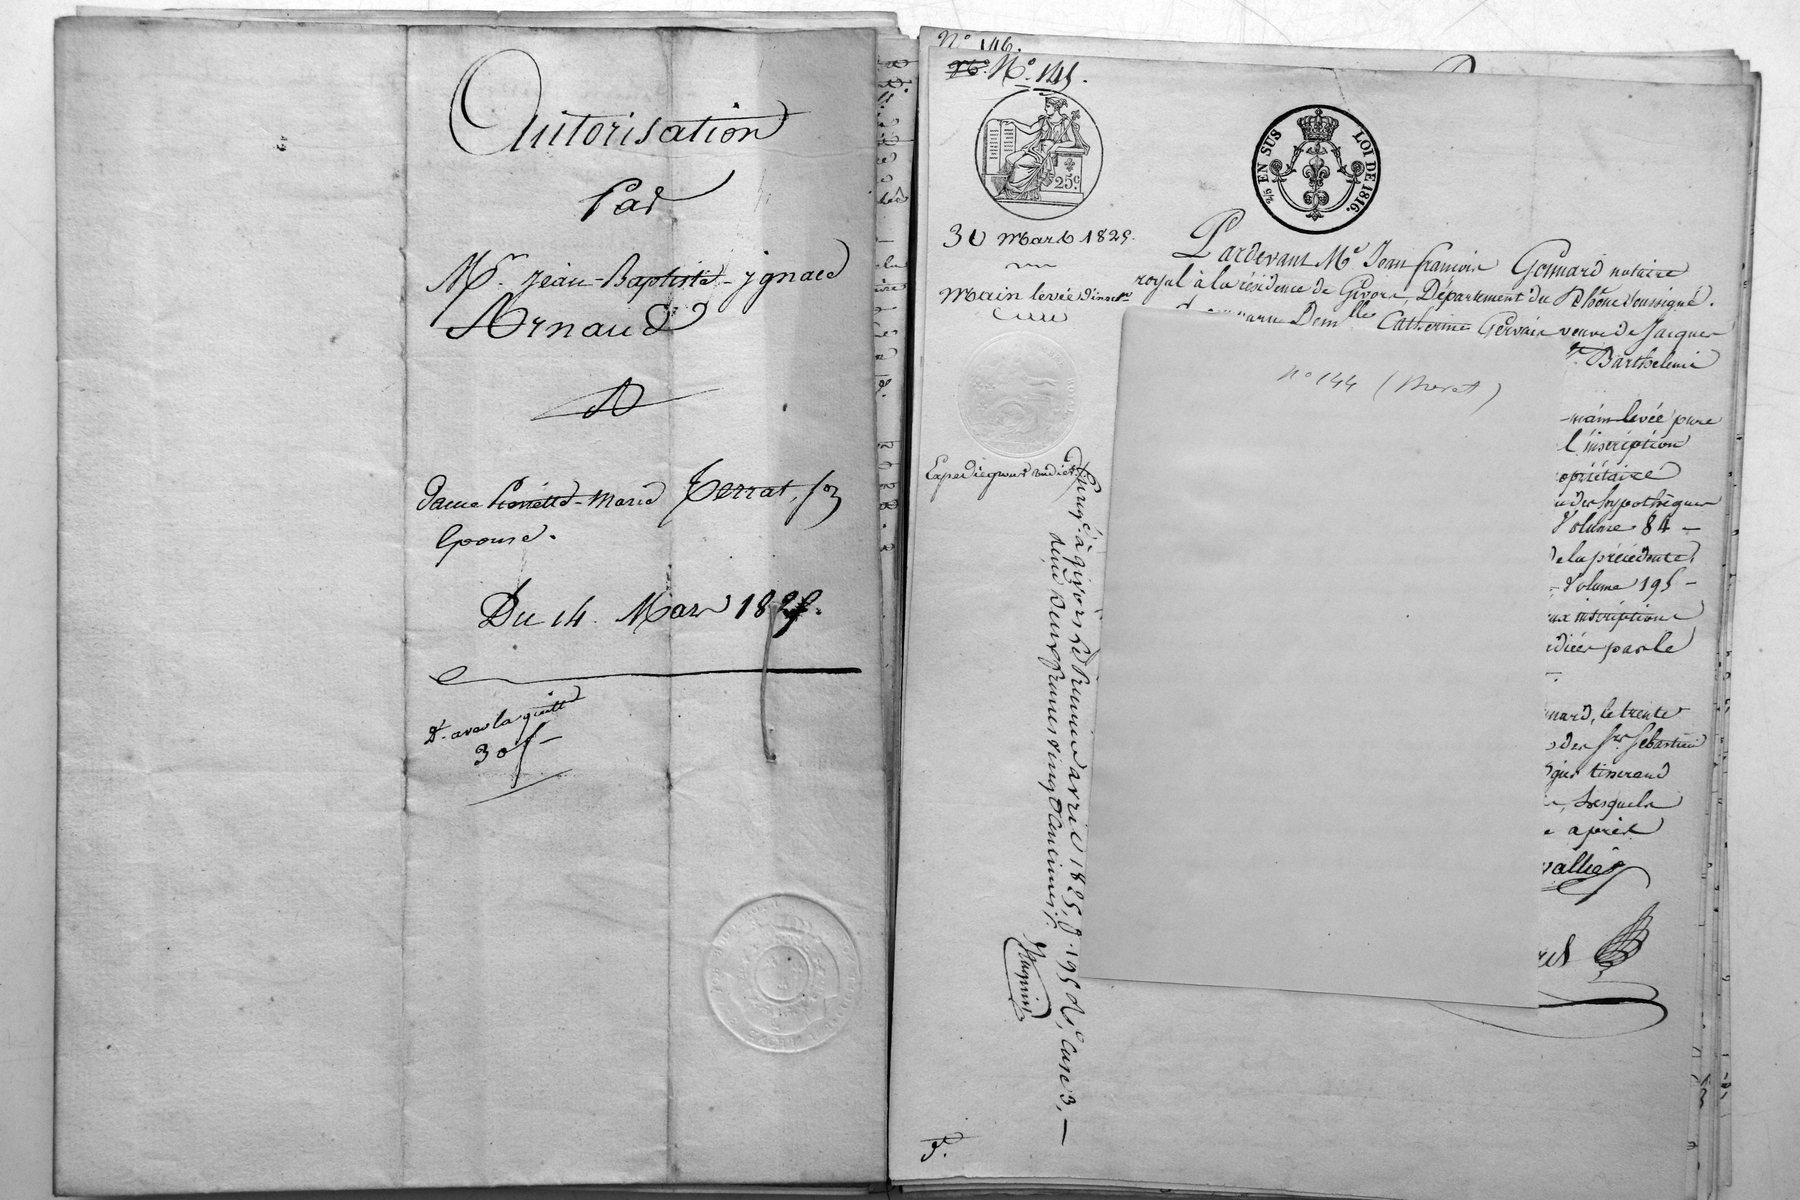 Autorisation
Par
Mr. Jean-Baptiste-Ignace
Arnaud
A
Dame Pierrette-Marie Terrat, son
Epouse.
Du 14. Mars 1825.
Dt. avec la quitt
30f
N° 146.
N° 145.
25c
2/5 EN SUS LOI DE 1816.
30 Mars 1825.
Main levée d'inscron
Pardevant Me Jean françois Gonnard notaire
royal à la résidence de Givors, Département du Rhône soussigné.
Demlle Catherine Gervais veuve de Jacques
Barthelemi
main levée pure
l'inscription
opriétaire
des hypothèques
Volume 84 -
de la précédente,
- Volume 195 -
inscriptions
diées par le
nard, le trente
des Srs Sebastien
tisserand
lesquels
après
vallier
N° 144 (Brevet)
Enregé à givors le premier avril 1825, f. 195 Ro, Case 3, —
reçu deux francs vingt centimes.